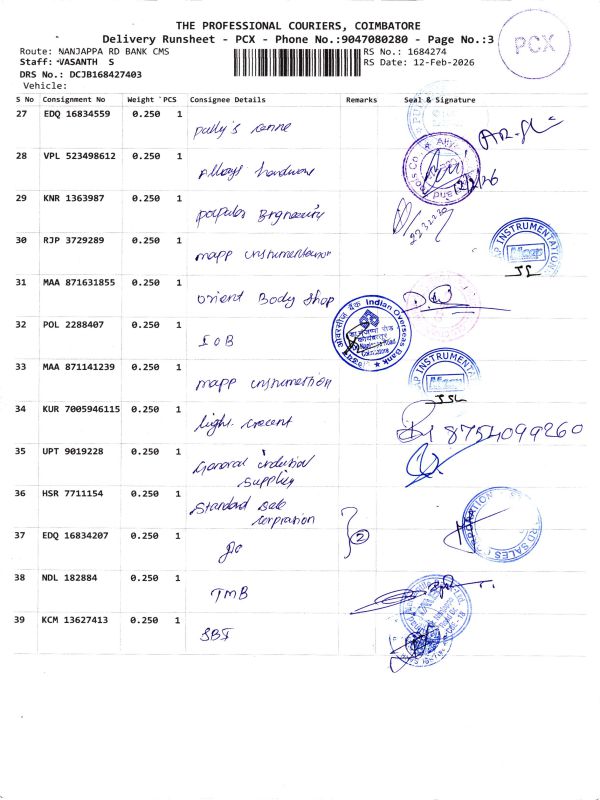 THE PROFESSIONAL COURIERS, COIMBATORE
Delivery Runsheet - PCX - Phone No.:9047080280 - Page No.:3
PCX
Route: NANJAPPA RD BANK CMS
RS No.: 1684274
Staff: VASANTH S
RS Date: 12-Feb-2026
DRS No.: DCJB168427403
Vehicle:
S No Consignment No Weight PCS Consignee Details Remarks Seal & Signature
27 EDQ 16834559 0.250 1
28 VPL 523498612 0.250 1 Alloys hardware
12/2/26
29 KNR 1363987 0.250 1 popular Engineering
30 RJP 3729289 0.250 1 mapp instrumentation
AP INSTRUMENTATION
31 MAA 871631855 0.250 1 Orient Body Shop
32 POL 2288407 0.250 1 IOB
Indian Overseas Bank
33 MAA 871141239 0.250 1 mapp instrumention
AP INSTRUMENTA
34 KUR 7005946115 0.250 1 light
8754099260
35 UPT 9019228 0.250 1 General industrial
Supplies
36 HSR 7711154 0.250 1 Standard Sale
Corpration
RD SALES
2
37 EDQ 16834207 0.250 1 Do
38 NDL 182884 0.250 1 TMB
39 KCM 13627413 0.250 1 SBI